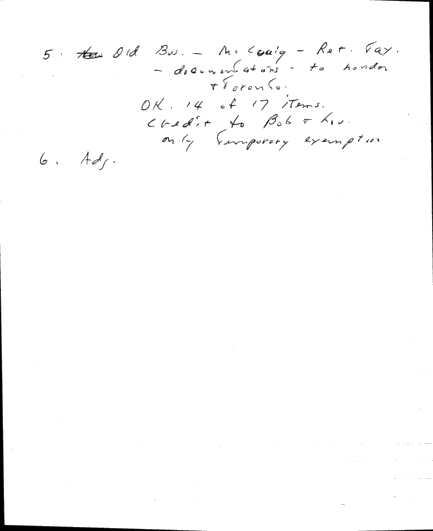 5. Old Bus. - McCraig - Ret. Tax.
- documentations - to London
+ Toronto.
OK. 14 of 17 items.
Credit to Bob + Liv.
only Temporary exemption
6. Adj.